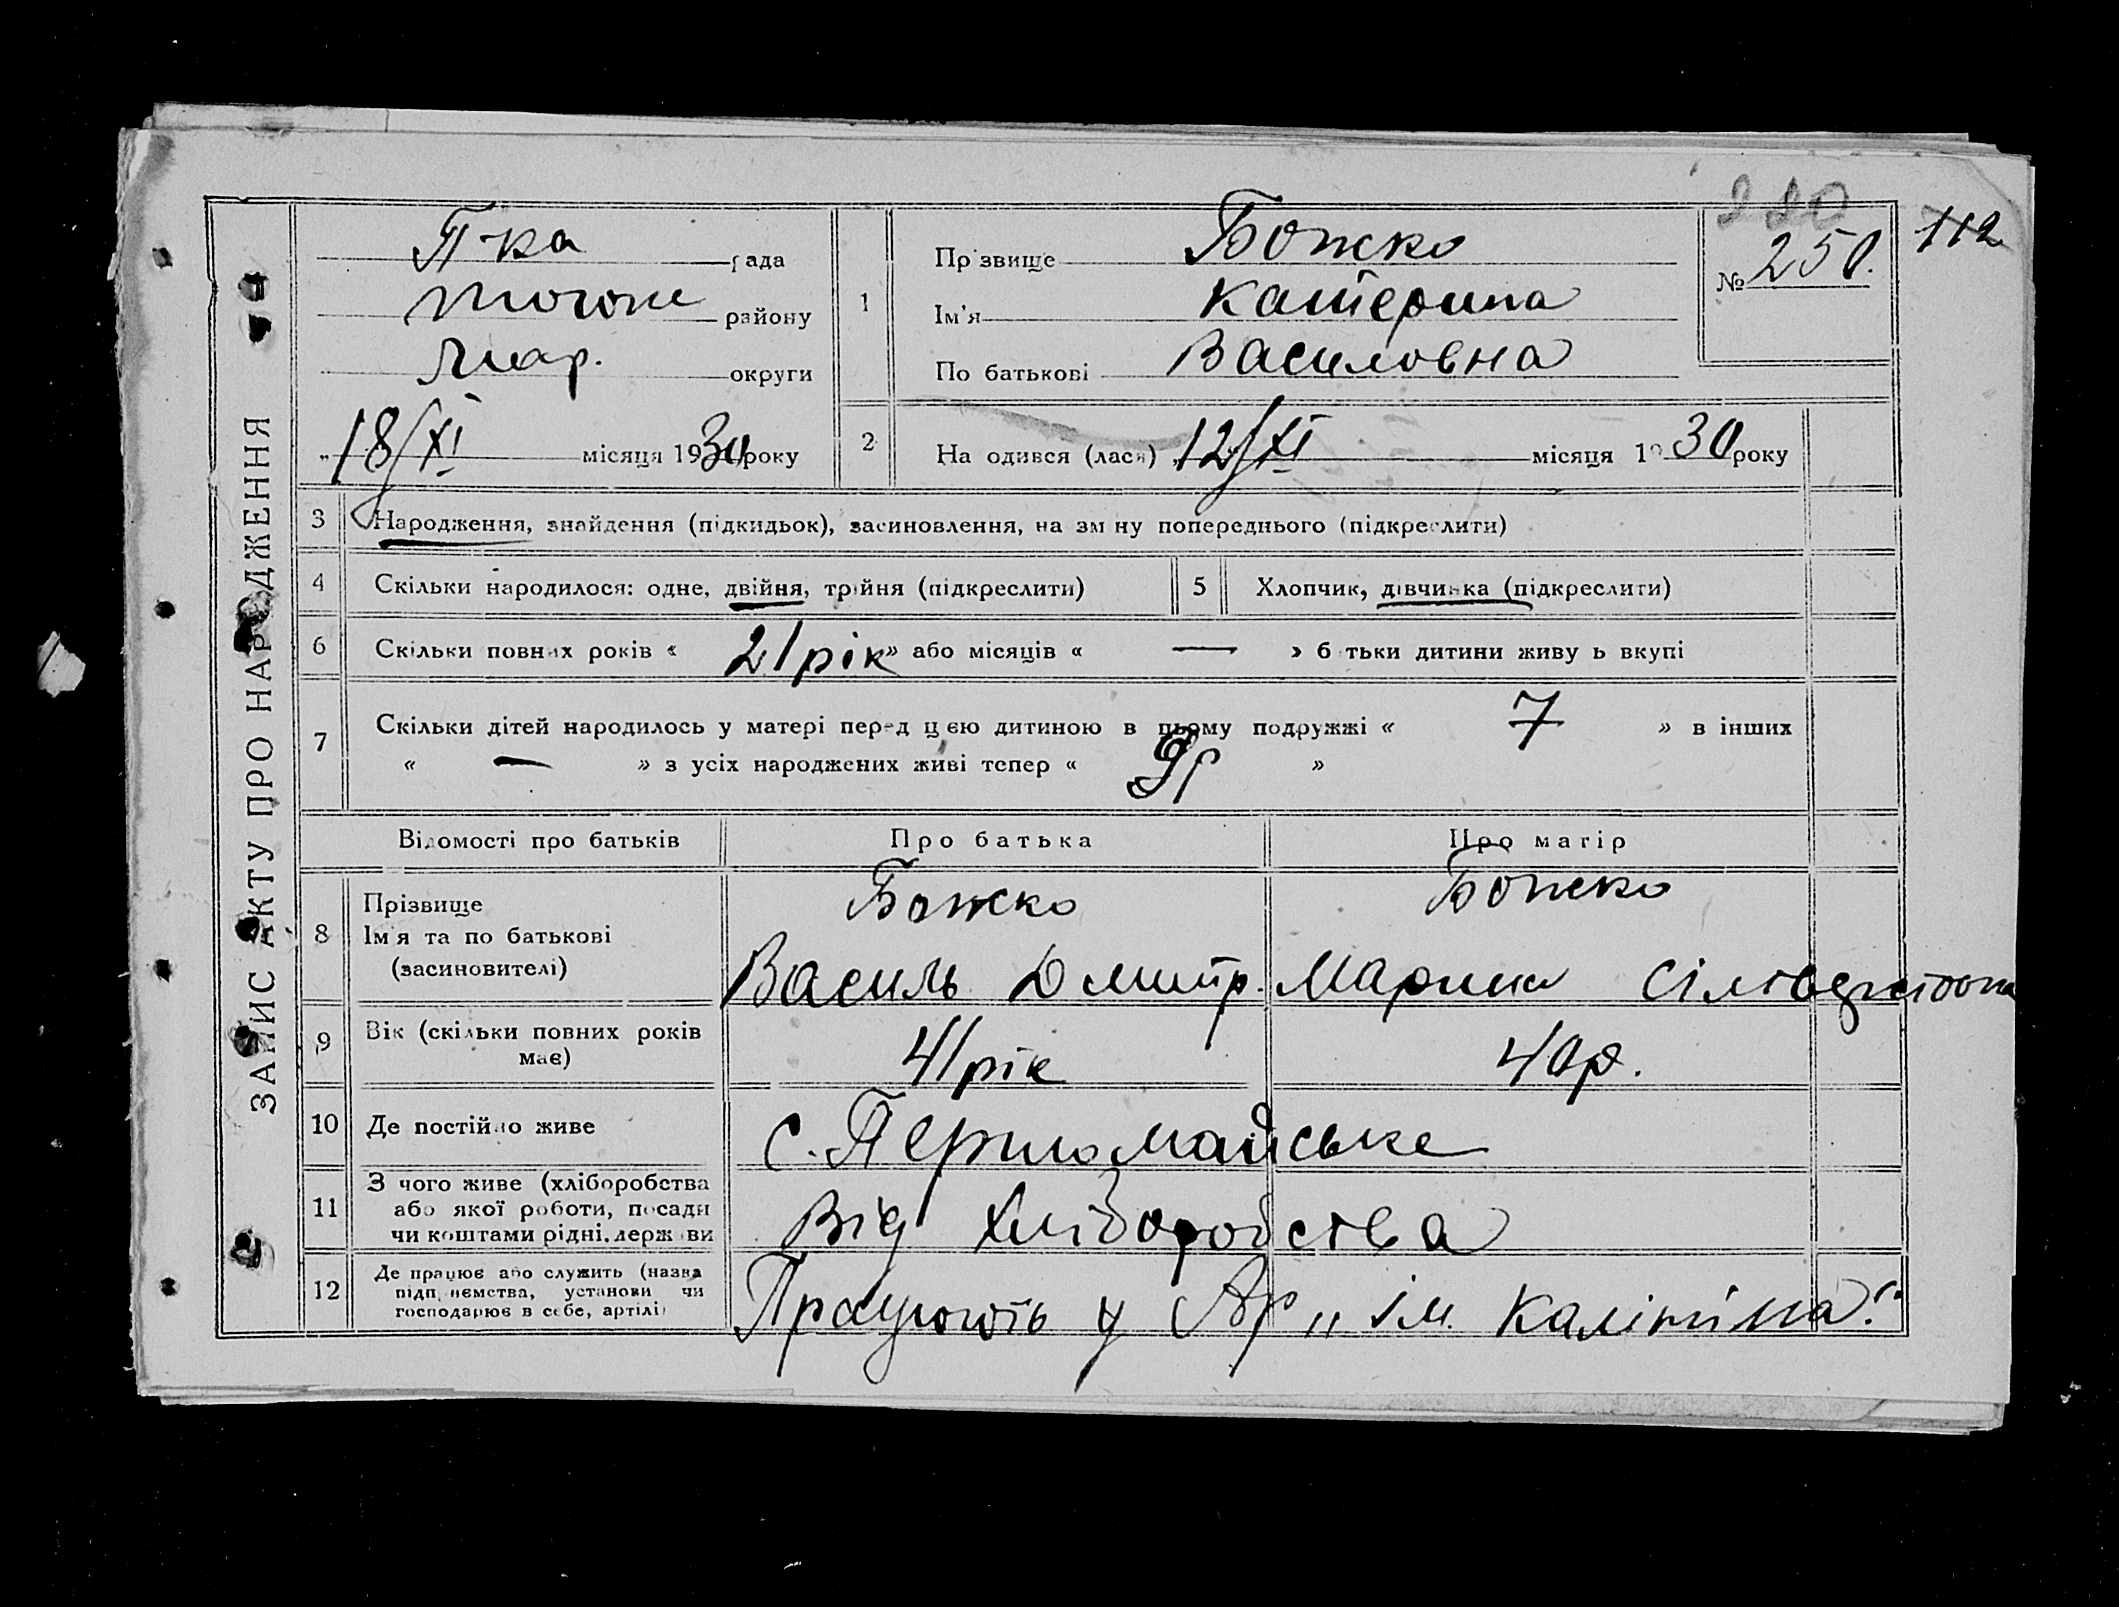 ЗАПИС АКТУ ПРО НАРОДЖЕННЯ
220
112
П-ка рада
району
Мар. округи
„18/XI місяця 1930 року
1 Прізвище Божко
Ім'я Катерина
По батькові Василовна
№ 250.
2 Народився (лася) 12/XI місяця 1930 року
3 Народження, знайдення (підкидьок), засиновлення, на зміну попереднього (підкреслити)
4 Скільки народилося: одне, двійня, трійня (підкреслити)
5 Хлопчик, дівчинка (підкреслити)
6 Скільки повних років « 21 рік » або місяців « — » батьки дитини живуть вкупі
7 Скільки дітей народилось у матері перед цією дитиною в цьому подружжі « 7 » в інших
« — » з усіх народжених живі тепер « »
Відомості про батьків
Про батька
Про матір
8 Прізвище
Ім'я та по батькові
(засиновителі)
Божко
Василь Дмитр.
Божко
Марина
9 Вік (скільки повних років
має)
41 рік
40 р.
10 Де постійно живе
с. Першомайське
11 З чого живе (хліборобства
або якої роботи, посади
чи коштами рідні, держави
Від хліборобства
12 Де працює або служить (назва
підприємства, установи чи
господарює в себе, артілі)
Працюють у Ар „ім. Калініна"